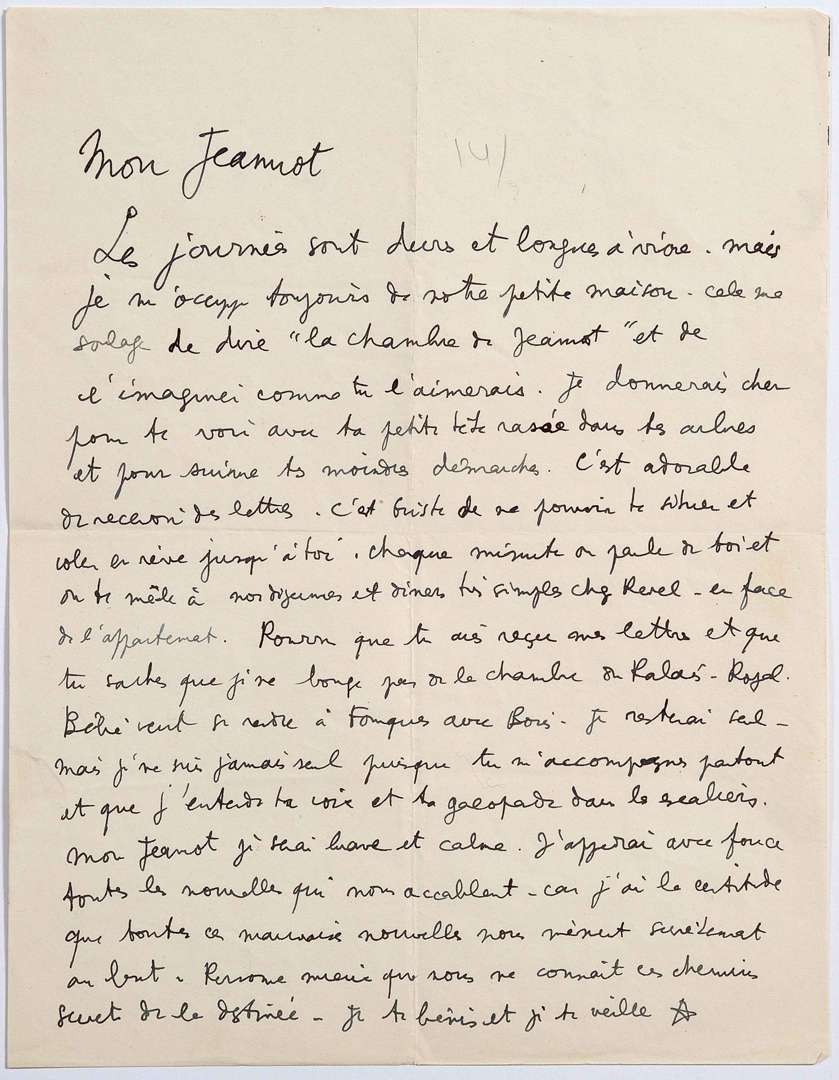 Mon Jeannot
14/
Les journées sont dures et longues à vivre. mais
je m'occupe toujours de notre petite maison. cela me
soulage de dire "la chambre de Jeannot" et de
l'imaginer comme tu l'aimerais. Je donnerais cher
pour te voir avec ta petite tête rasée dans tes arbres
et pour suivre tes moindres démarches. C'est adorable
de recevoir des lettres. C'est triste de ne pouvoir te situer et
voler en rêve jusqu'à toi. chaque minute on parle de toi et
on te mêle à nos déjeuners et dîners très simples chez Revel - en face
de l'appartement. Pourvu que tu aies reçu mes lettres et que
tu saches que je ne bouge pas de la chambre du Palais-Royal.
Bébé veut se rendre à Fourques avec Boris - Je resterai seul -
mais je ne suis jamais seul puisque tu m'accompagnes partout
et que j'entends ta voix et ta galopade dans les escaliers.
Mon Jeannot je serai brave et calme. J'apprendrai avec force
toutes les nouvelles qui nous accablent - car j'ai la certitude
que toutes ces mauvaises nouvelles nous mènent secrètement
au but. Personne mieux que nous ne connaît ces chemins
secrets de la destinée - Je te bénis et je te veille